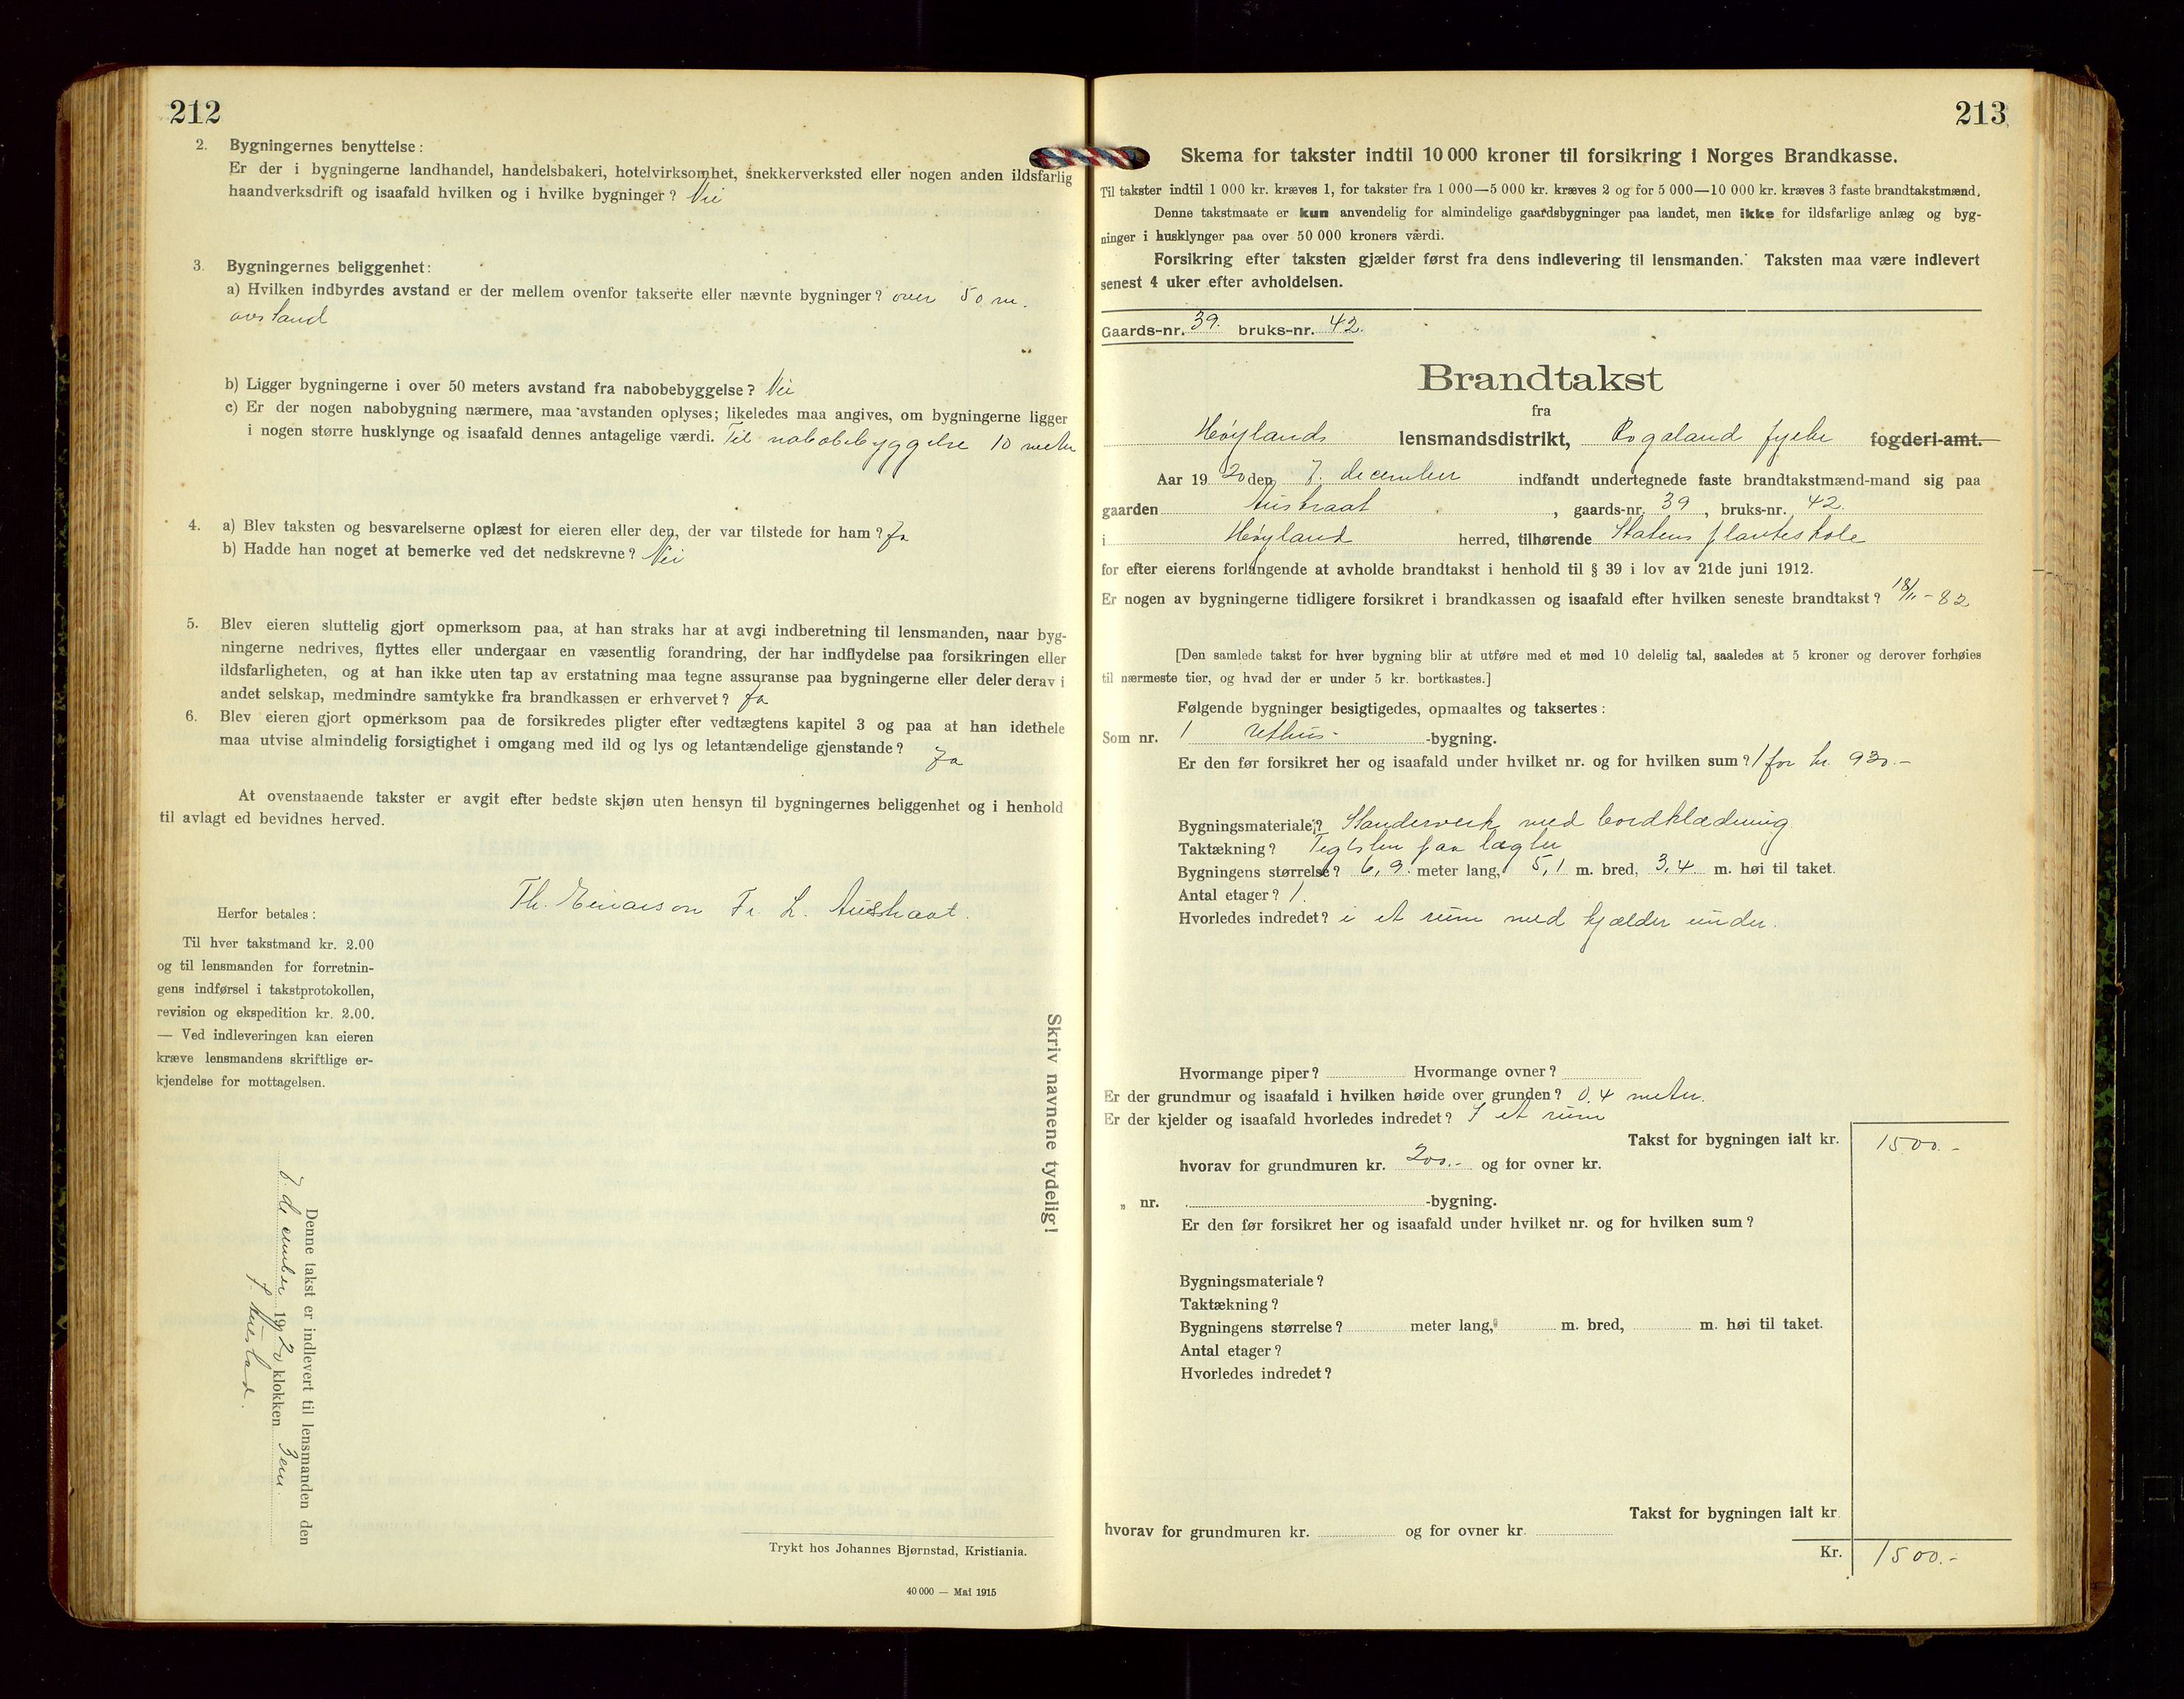 212
2. Bygningernes benyttelse:
Er der i bygningerne landhandel, handelsbakeri, hotelvirksomhet, snekkerverksted eller nogen anden ildsfarlig
haandverksdrift og isaafald hvilken og i hvilke bygninger? Nei
3. Bygningernes beliggenhet:
a) Hvilken indbyrdes avstand er der mellem ovenfor takserte eller nævnte bygninger? over 50 m.
avstand
b) Ligger bygningerne i over 50 meters avstand fra nabobebyggelse? Nei
c) Er der nogen nabobygning nærmere, maa avstanden oplyses; likeledes maa angives, om bygningerne ligger
i nogen større husklynge og isaafald dennes antagelige værdi. Til nabobebyggelse 10 meter
4. a) Blev taksten og besvarelserne oplæst for eieren eller den, der var tilstede for ham? Ja
b) Hadde han noget at bemerke ved det nedskrevne? Nei
5. Blev eieren sluttelig gjort opmerksom paa, at han straks har at avgi indberetning til lensmanden, naar byg-
ningerne nedrives, flyttes eller undergaar en væsentlig forandring, der har indflydelse paa forsikringen eller
ildsfarligheten, og at han ikke uten tap av erstatning maa tegne assuranse paa bygningerne eller deler derav i
andet selskap, medmindre samtykke fra brandkassen er erhvervet? Ja
6. Blev eieren gjort opmerksom paa de forsikredes pligter efter vedtægtens kapitel 3 og paa at han idethele
maa utvise almindelig forsigtighet i omgang med ild og lys og letantændelige gjenstande? Ja
At ovenstaaende takster er avgit efter bedste skjøn uten hensyn til bygningernes beliggenhet og i henhold
til avlagt ed bevidnes herved.
Th. Einarson Fr. L. Austraat.
Herfor betales:
Til hver takstmand kr. 2.00
og til lensmanden for forretnin-
gens indførsel i takstprotokollen,
revision og ekspedition kr. 2.00.
— Ved indleveringen kan eieren
kræve lensmandens skriftlige er-
kjendelse for mottagelsen.
Skriv navnene tydelig!
Denne takst er indlevert til lensmanden den
7. december 1920 klokken 3 em.
Trykt hos Johannes Bjørnstad, Kristiania.
40 000 — Mai 1915
213
Skema for takster indtil 10 000 kroner til forsikring i Norges Brandkasse.
Til takster indtil 1 000 kr. kræves 1, for takster fra 1 000—5 000 kr. kræves 2 og for 5 000—10 000 kr. kræves 3 faste brandtakstmænd.
Denne takstmaate er kun anvendelig for almindelige gaardsbygninger paa landet, men ikke for ildsfarlige anlæg og byg-
ninger i husklynger paa over 50 000 kroners værdi.
Forsikring efter taksten gjælder først fra dens indlevering til lensmanden. Taksten maa være indlevert
senest 4 uker efter avholdelsen.
Gaards-nr. 39. bruks-nr. 42.
Brandtakst
fra
Høylands lensmandsdistrikt, Rogaland fylke fogderi-amt.
Aar 1920 den 7. december indfandt undertegnede faste brandtakstmænd-mand sig paa
gaarden Austraat, gaards-nr. 39, bruks-nr. 42.
i Høyland herred, tilhørende Statens planteskole
for efter eierens forlangende at avholde brandtakst i henhold til § 39 i lov av 21de juni 1912.
Er nogen av bygningerne tidligere forsikret i brandkassen og isaafald efter hvilken seneste brandtakst? 18/11-82
[Den samlede takst for hver bygning blir at utføre med et med 10 delelig tal, saaledes at 5 kroner og derover forhøies
til nærmeste tier, og hvad der er under 5 kr. bortkastes.]
Følgende bygninger besigtigedes, opmaaltes og taksertes:
Som nr. 1 Uthus- -bygning.
Er den før forsikret her og isaafald under hvilket nr. og for hvilken sum? 1 for kr. 930.-
Bygningsmateriale? Standerverk med bordklædning
Taktækning? Teglsten paa lægter
Bygningens størrelse? 6,9 meter lang, 5,1 m. bred, 3,4 m. høi til taket.
Antal etager? 1.
Hvorledes indredet? i et rum med kjælder under.
Hvormange piper? Hvormange ovner?
Er der grundmur og isaafald i hvilken høide over grunden? 0,4 meter.
Er der kjelder og isaafald hvorledes indredet? I et rum
Takst for bygningen ialt kr. 1500.-
hvorav for grundmuren kr. 200.- og for ovner kr.
„ nr. -bygning.
Er den før forsikret her og isaafald under hvilket nr. og for hvilken sum?
Bygningsmateriale?
Taktækning?
Bygningens størrelse? meter lang, m. bred, m. høi til taket.
Antal etager?
Hvorledes indredet?
Takst for bygningen ialt kr.
hvorav for grundmuren kr. og for ovner kr.
Kr. 1500.-